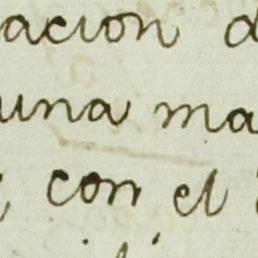 acion d
una ma
con el